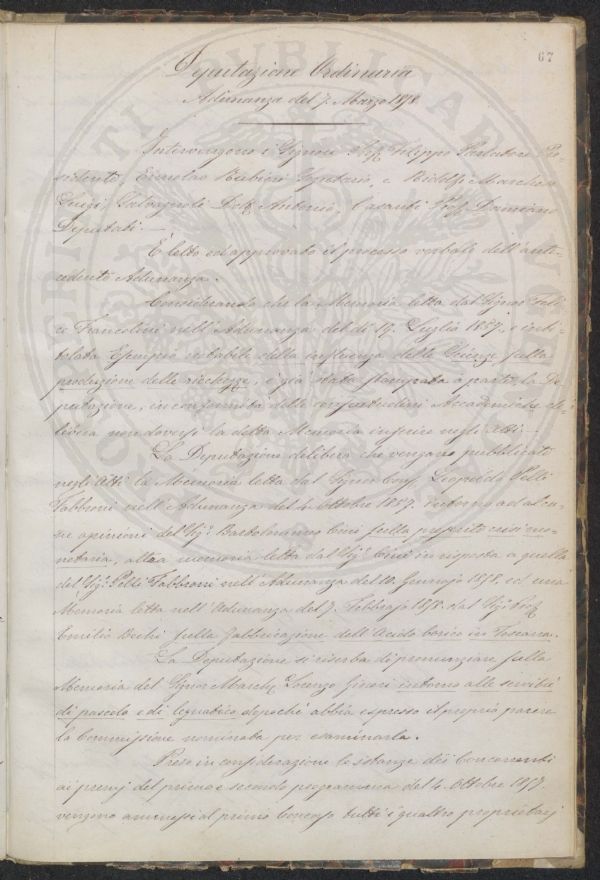 67
Deputazione Ordinaria
Adunanza del 7. Marzo 1858.
Intervengono i Signori Prof. Filippo Parlatore Pre-
sidente, Cav. Rubieri Segretario, e Ridolfi Marchese
Luigi, Salvagnoli Dott. Antonio, Casanti Prof. Damiano
Deputati. —
È letto ed approvato il processo verbale dell'ante-
cedente Adunanza.
Considerando che la Memoria letta dal Signor Feli-
ce Francolini nell'Adunanza del dì 19. Luglio 1857. e inti-
tolata Esempio notabile della influenza delle Scienze sulla
produzione delle ricchezze, è già stata stampata a parte, la De-
putazione, in conformità delle consuetudini Accademiche de-
libera non doversi la detta Memoria inserire negli Atti. —
La Deputazione delibera che vengano pubblicate
negli Atti la Memoria letta dal Signor Leopoldo Pelli
Fabbroni nell'Adunanza del 4. Ottobre 1857. intorno ad alcu-
ne opinioni del Sig. Bartolommeo Cini sulla presente crisi mo-
netaria, altra memoria letta dal Sig. Cini in risposta a quella
del Sig. Pelli Fabbroni nell'Adunanza del 10. Gennajo 1858. ed una
Memoria letta nell'Adunanza del 7. Febbrajo 1858. dal Sig. Prof.
Emilio Bechi sulla Fabbricazione dell'Acido borico in Toscana.
La Deputazione si riserba di pronunziare sulla
Memoria del Signor March. Lorenzo Ginori intorno alle servitù
di pascolo e di legnatico dopochè abbia espresso il proprio parere
la Commissione nominata per esaminarla.
Prese in considerazione le istanze dei Concorrenti
ai premj del primo e secondo programma del 4. Ottobre 1857
vengono ammessi al primo Concorso tutti i quattro proprietarj